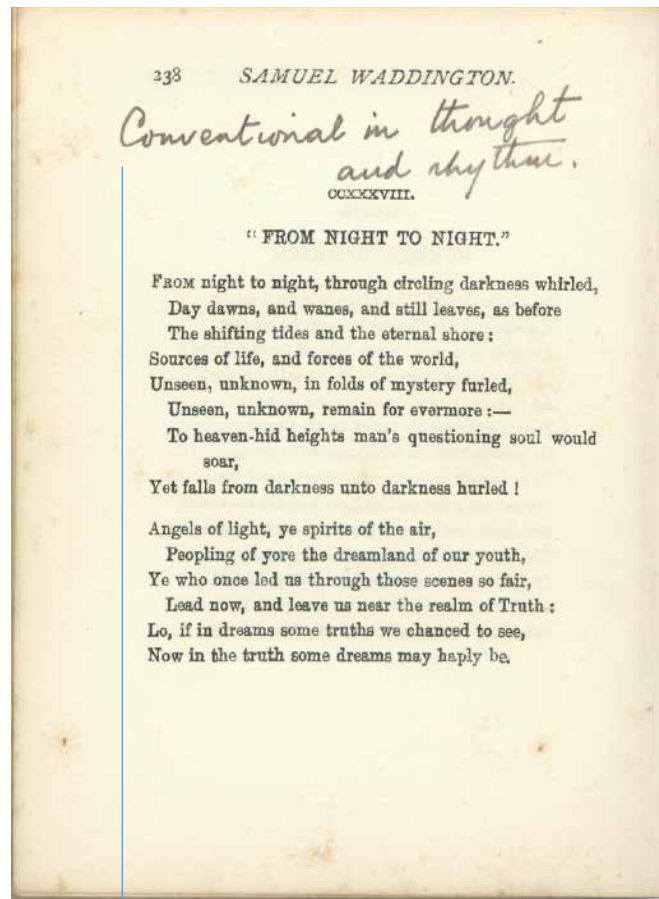 238 SAMUEL WADDINGTON.
Conventional in thought
and rhythm.
CCXXXVIII.
"FROM NIGHT TO NIGHT."
FROM night to night, through circling darkness whirled,
Day dawns, and wanes, and still leaves, as before
The shifting tides and the eternal shore:
Sources of life, and forces of the world,
Unseen, unknown, in folds of mystery furled,
Unseen, unknown, remain for evermore :—
To heaven-hid heights man's questioning soul would
soar,
Yet falls from darkness unto darkness hurled !
Angels of light, ye spirits of the air,
Peopling of yore the dreamland of our youth,
Ye who once led us through those scenes so fair,
Lead now, and leave us near the realm of Truth :
Lo, if in dreams some truths we chanced to see,
Now in the truth some dreams may haply be.